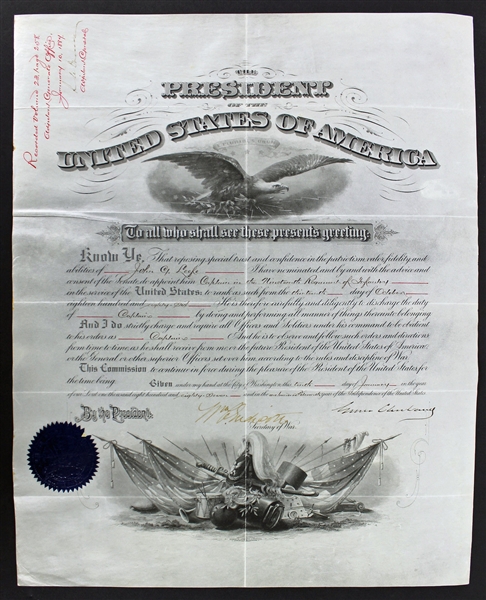 Recorded Volume 23, page 208
Adjutant General's Office
January 12, 1887
Adjutant General
THE
PRESIDENT
OF THE
UNITED STATES OF AMERICA
To all who shall see these presents greeting:
Know Ye, That reposing special trust and confidence in the patriotism, valor, fidelity and
abilities of John G. I have nominated and by and with the advice and
consent of the Senate do appoint him Captain in the Nineteenth Regiment of Infantry
in the service of the United States: to rank as such from the day of October
eighteen hundred and eighty He is therefore carefully and diligently to discharge the duty
of Captain by doing and performing all manner of things thereunto belonging.
And I do strictly charge and require all Officers and Soldiers under his command to be obedient
to his orders as Captain And he is to observe and follow such orders and directions
from time to time as he shall receive from me or the future President of the United States of America
or the General or other superior Officers set over him, according to the rules and discipline of War.
This Commission to continue in force during the pleasure of the President of the United States for
the time being.
Given under my hand at the City of Washington this tenth day of January in the year
of our Lord one thousand eight hundred and eighty-seven and in the one hundred and eleventh year of the Independence of the United States.
By the President.
Wm C Endicott
Secretary of War.
Grover Cleveland